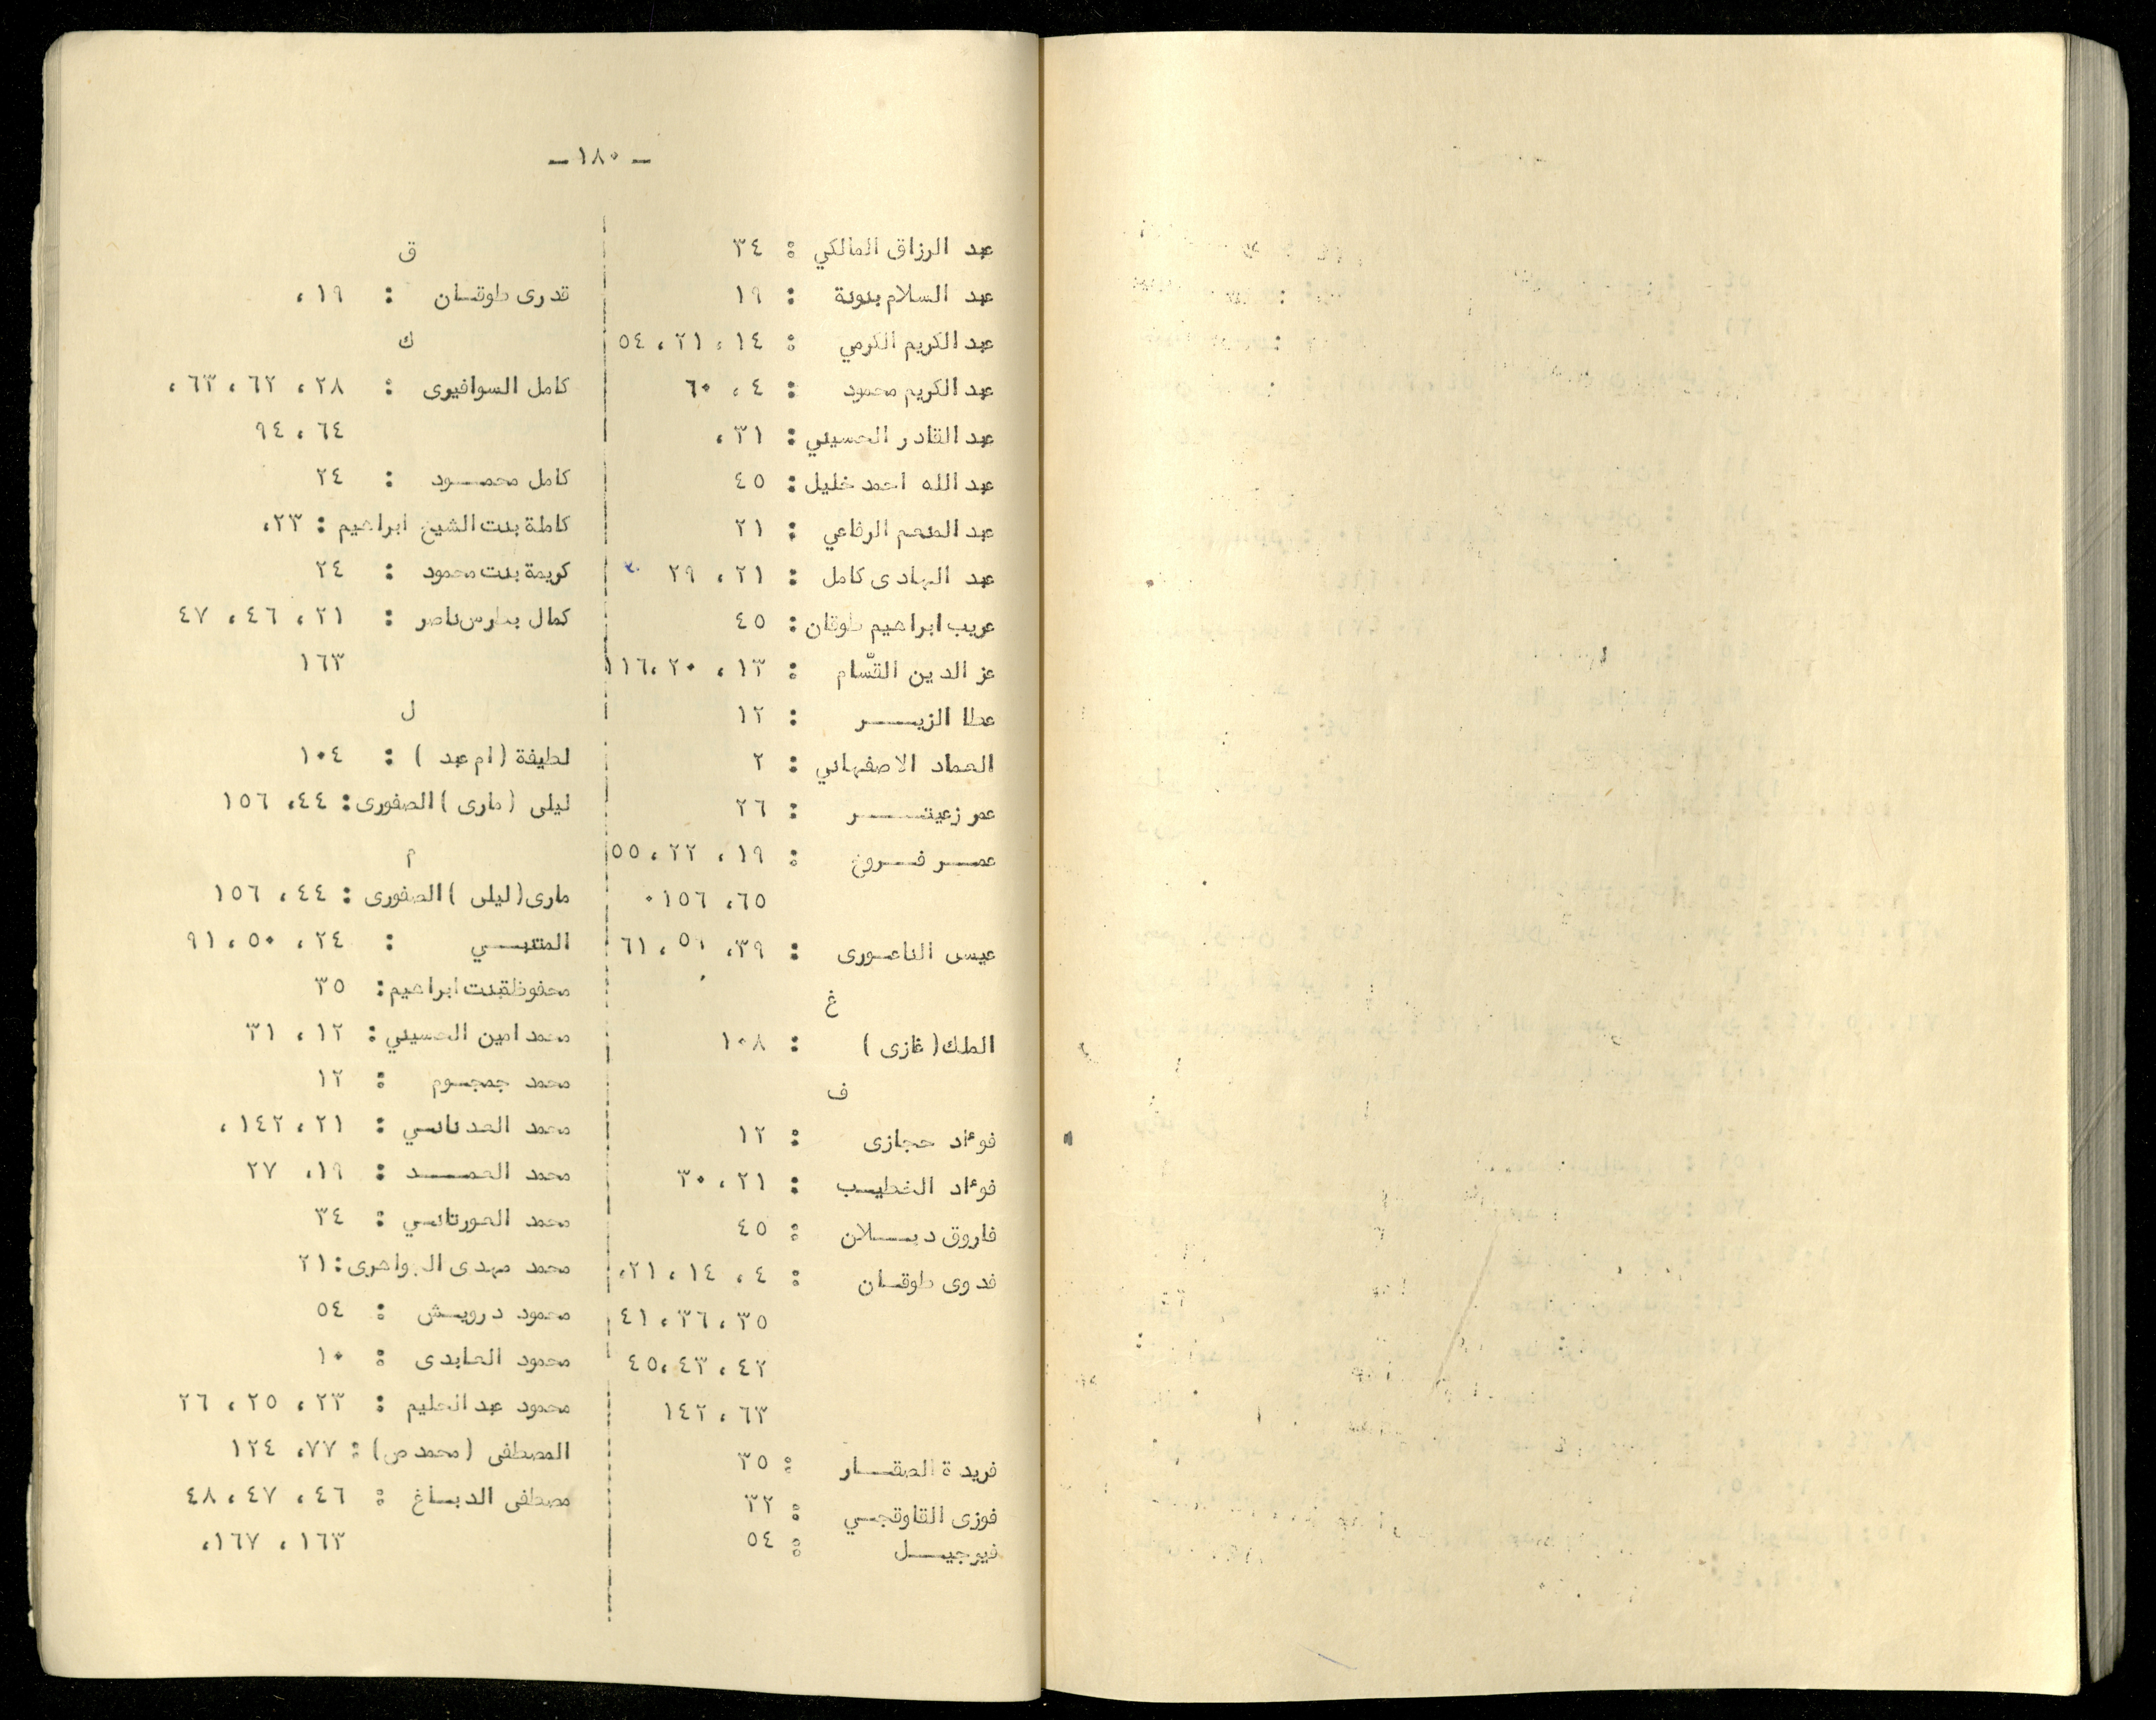 - ١٨٠ -
عبد الرزاق المالكي : ٣٤
عبد السلام بنونة : ١٩
عبد الكريم الكرمي : ١٤، ٢١، ٥٤
عبد الكريم محمود : ٤، ٦٠
عبد القادر الحسيني : ٣١،
عبد الله احمد خليل : ٤٥
عبد المنعم الرفاعي : ٢١
عبد الهادى كامل : ٢١، ٢٩ ٣٠
عريب ابراهيم طوقان : ٤٥
عز الدين القسّام : ١٣، ٢٠، ١١٦
عطا الزيـــر : ١٢
العماد الاصفهاني : ٢
عمر زعيتـــر : ٢٦
عمـــر فــروخ : ١٩، ٢٢، ٥٥
٦٥، ١٥٦٠
عيسى الناعـورى : ٣٩، ٥١، ٦١
غ
الملك ( غازى ) : ١٠٨
ف
فوءاد حجازى : ١٢
فوءاد الخطيـب : ٢١، ٣٠
فاروق ديـــلان : ٤٥
فدوى طوقـان : ٤، ١٤، ٢١،
٣٥، ٣٦، ٤١
٤٢، ٤٣، ٤٥
٦٣، ١٤٢
فريدة الصقـــار : ٣٥
فوزى القاوقجــي : ٣٢
فيرجيـــل : ٥٤
ق
قدرى طوقـان : ١٩،
ك
كامل السوافيرى : ٢٨، ٦٢، ٦٣،
٦٤، ٩٤
كامل محمـــود : ٢٤
كاملة بنت الشيخ ابراهيم : ٢٣،
كريمة بنت محمود : ٢٤
كمال بطرس ناصر : ٢١، ٤٦، ٤٧
١٦٣
ل
لطيفة ( ام عبد ) : ١٠٤
ليلى ( مارى ) الصفورى : ٤٤، ١٥٦
م
مارى ( ليلى ) الصفورى : ٤٤، ١٥٦
المتنبـــي : ٢٤، ٥٠، ٩١
محفوظةبنت ابراهيم : ٣٥
محمد امين الحسيني : ١٢، ٣١
محمد جمجــوم : ١٢
محمد العدناني : ٢١، ١٤٢،
محمد الحمـــد : ١٩، ٢٧
محمد الحورتاني : ٣٤
محمد مهدى الجواهرى : ٢١
محمود درويـش : ٥٤
محمود العابدى : ١٠
محمود عبد الحليم : ٢٣، ٢٥، ٢٦
المصطفى ( محمد ص ) : ٧٧، ١٢٤
مصطفى الدبـاغ : ٤٦، ٤٧، ٤٨
١٦٣، ١٦٧،